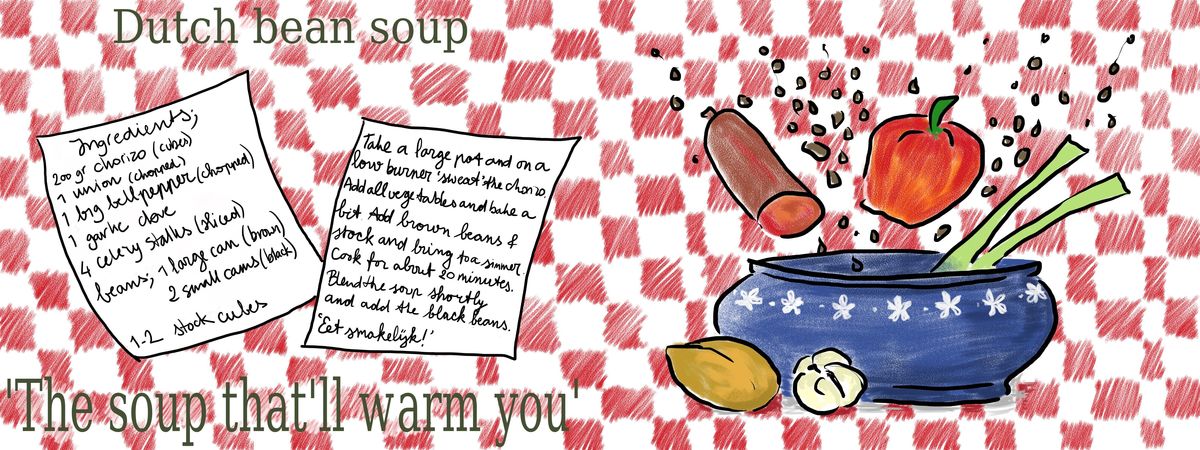 Dutch bean soup
Ingredients;
200 gr chorizo (cubes)
1 union (chopped)
1 big bellpepper (chopped)
1 garlic clove
4 celery stalks (sliced)
beans; 1 large can (brown)
2 small cans (black)
1-2 stock cubes
Take a large pot and on a
low burner 'sweat' the chorizo.
Add all vegetables and bake a
bit. Add brown beans &
stock and bring to a simmer.
Cook for about 20 minutes.
Blend the soup shortly
and add the black beans.
'Eet smakelijk!'
'The soup that'll warm you'